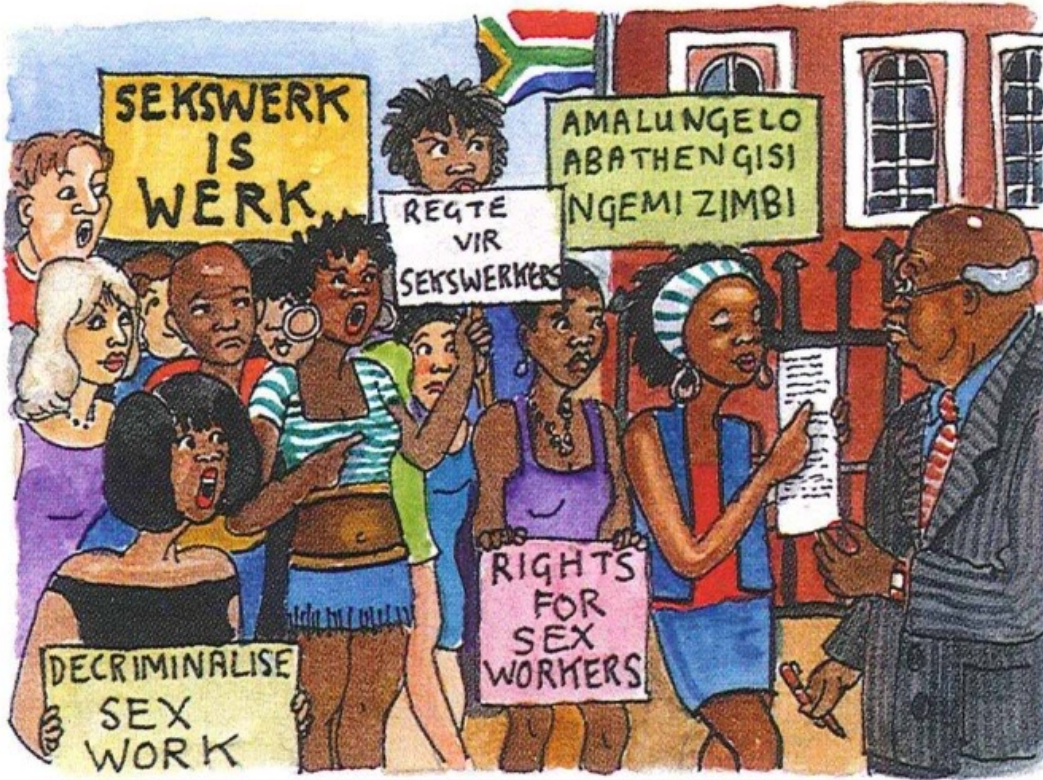 SEKSWERK
IS
WERK
REGTE
VIR
SEKSWERKERS
AMALUNGELO
ABATHENGISI
NGEMIZIMBI
RIGHTS
FOR
SEX
WORKERS
DECRIMINALISE
SEX
WORK